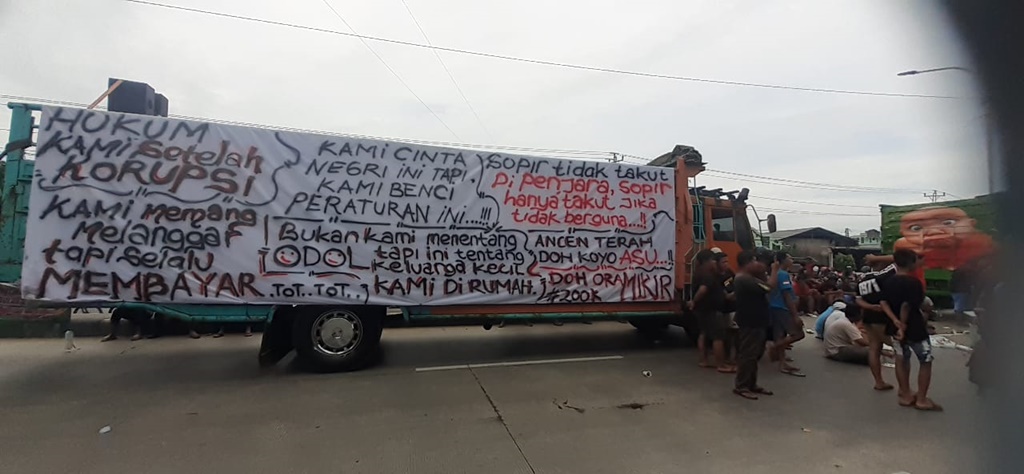 HUKUM
KAMI setelah
KORUPSI
KAMI memang
Melanggar
tapi selalu
MEMBAYAR
KAMI CINTA
NEGRI INI TAPI
KAMI BENCI
PERATURAN INI...!!!
Sopir tidak takut
Di penjara, sopir
hanya takut jika
tidak berguna...!!
Bukan kami menentang
ODOL tapi ini tentang
keluarga kecil
TOT.. TOT.. KAMI DI RUMAH.
ANCEN TERAH
DOH KOYO ASU..!!
DOH ORA MIKIR
1971